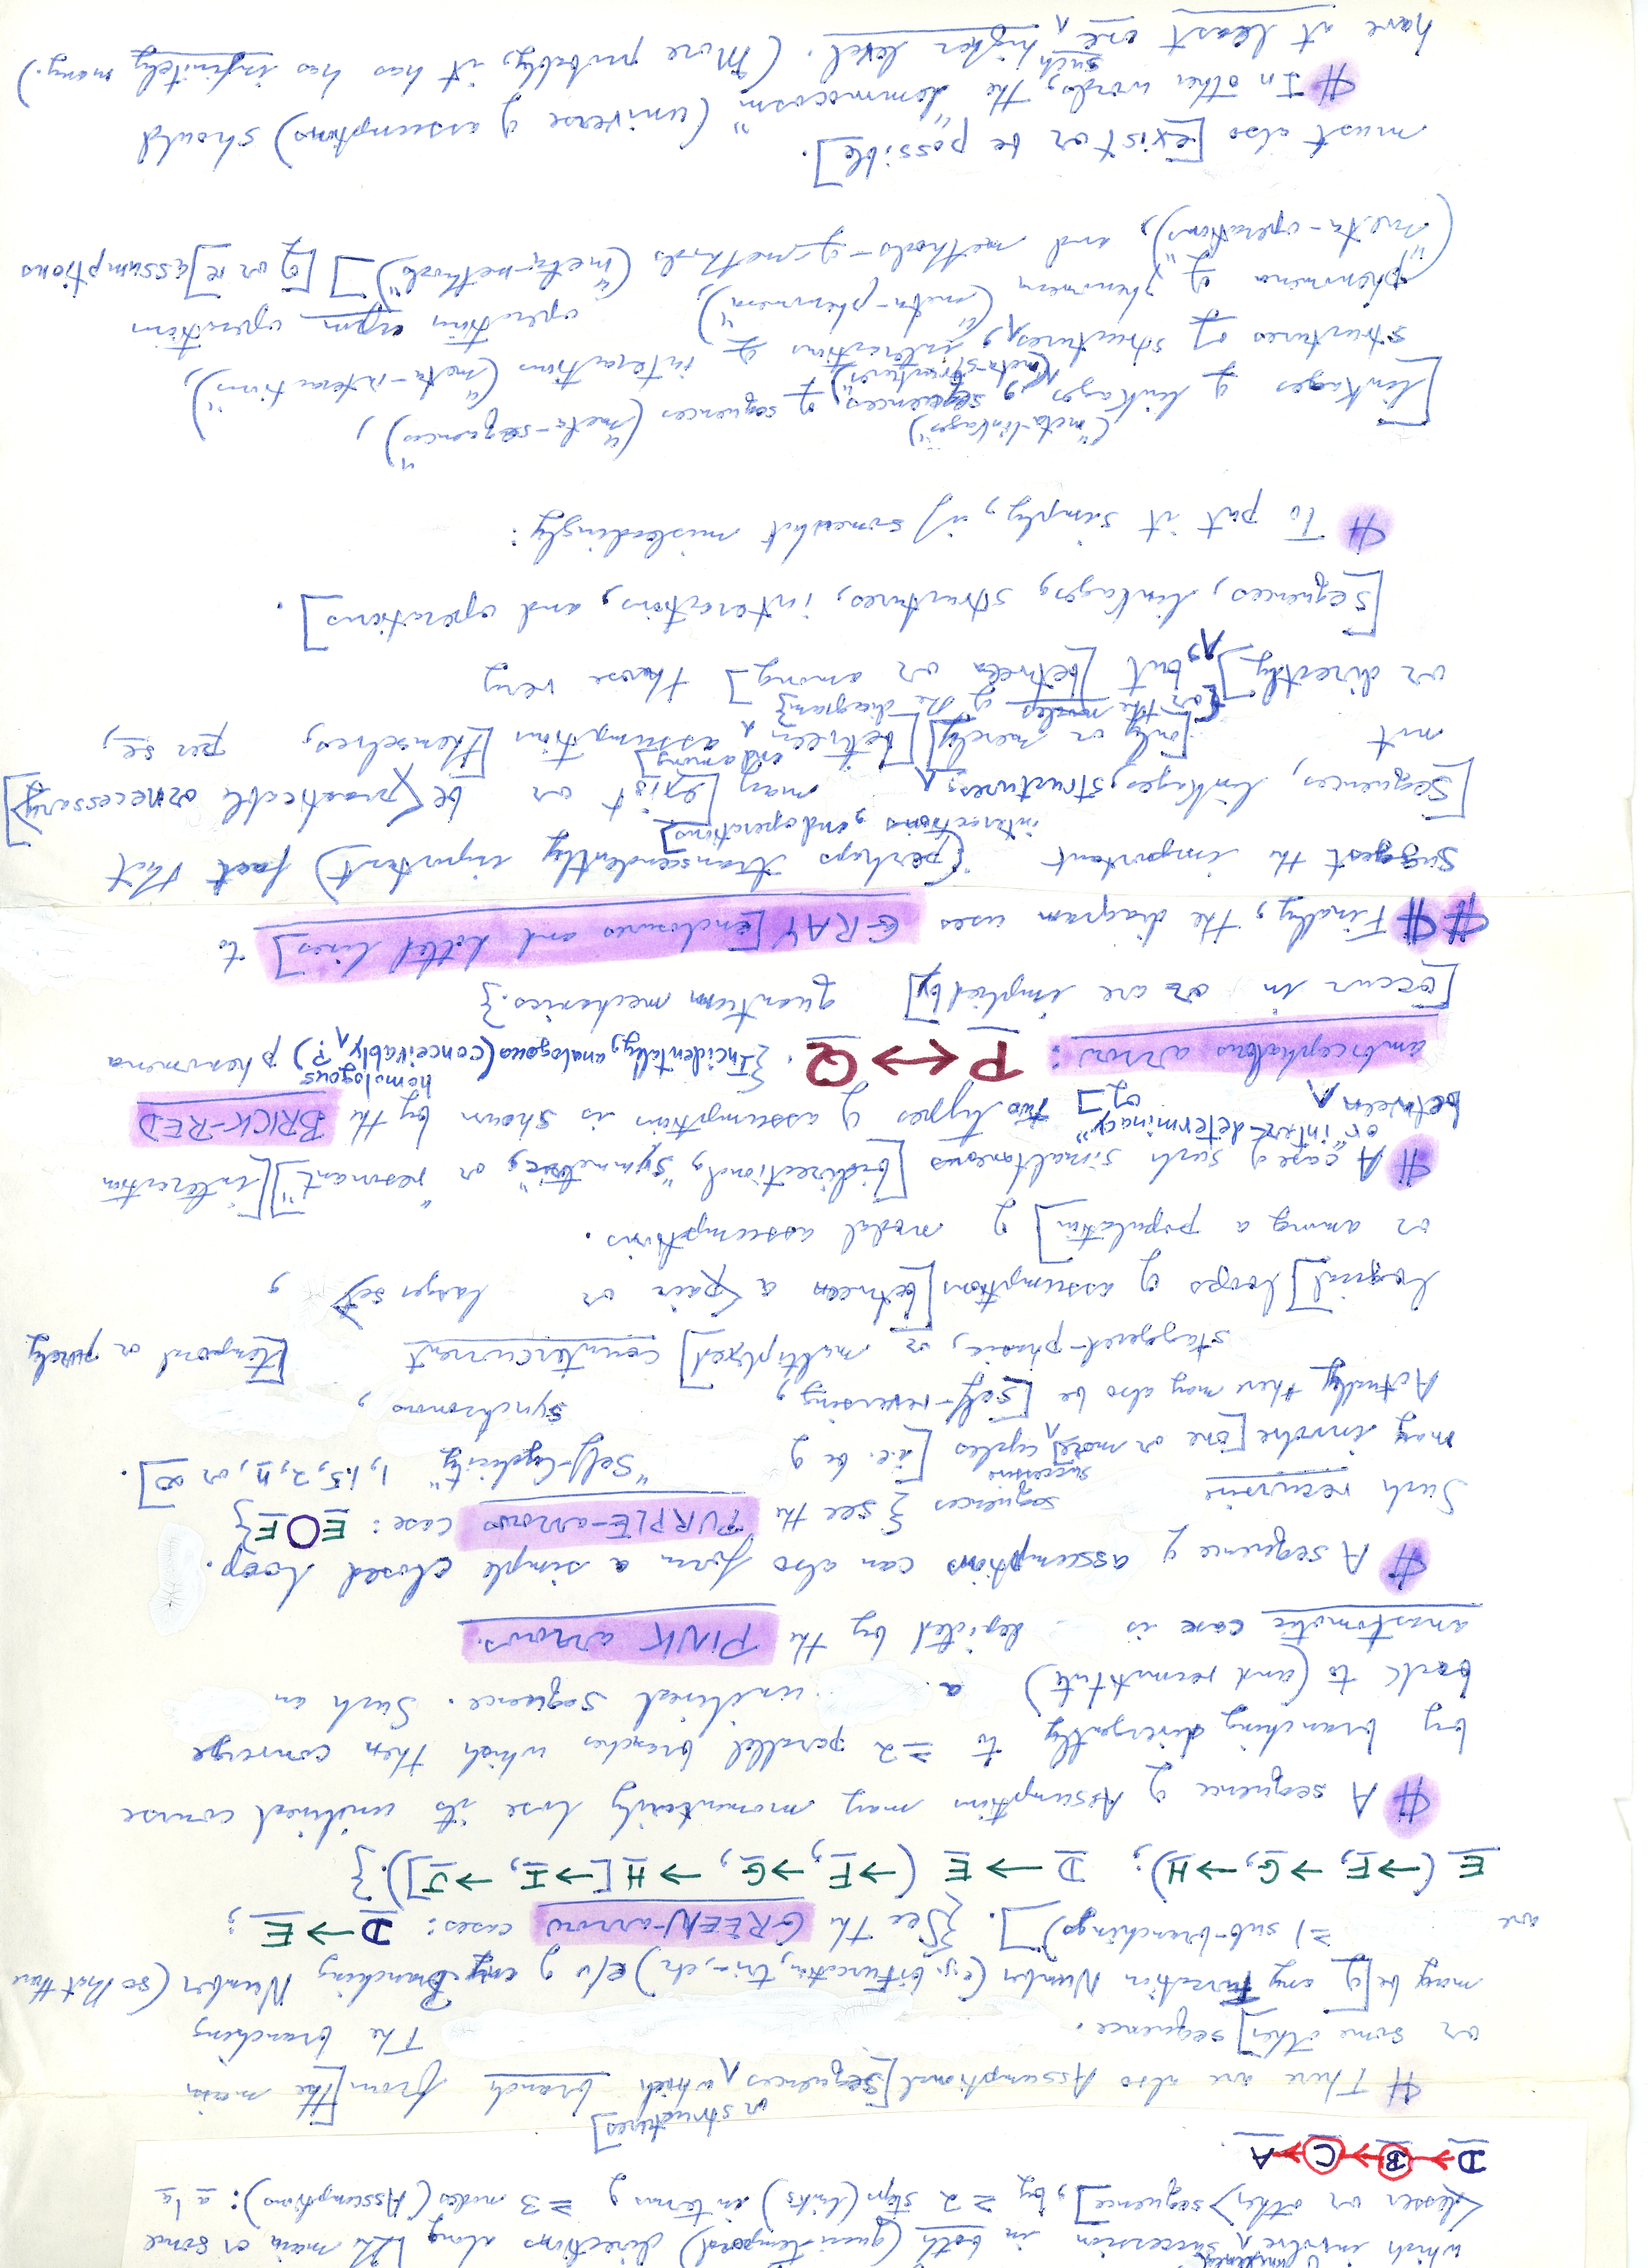 which involve succession in both (quasi-temporal) directions along [the main or some
<lesser or other> sequence], by ≥2 steps (links) in terms of ≥3 nodes (Assumptions): à la
D→B→C→A.
¶ There are also Assumptional [sequences or structures] which branch from [the main
or some other] sequence. The branching
may be [of any Furcation Number (e.g. bifurcation, tri-, etc) e/o of any Branching Number (so that there
are ≥1 sub-branchings)]. {See the GREEN-arrow cases: D→E;
E (→F, →G, →H); D→E (→F, →G, →H [→I, →J]).}
¶ A sequence of Assumption may momentarily lose its unilineal course
by branching divergently to ≥2 parallel branches which then converge
back to (and reconstitute) a unilineal sequence. Such an
anastomotic case is depicted by the PINK arrows.
¶ A sequence of assumptions can also form a simple closed loop.
Such recursive sequences {see the PURPLE-arrow case: E○F}
may involve one [or more] successive cycles [i.e. be of "Self-Cyclicity" 1, 1.5, 2, n, or ∞].
Actually there may also be [self-reversing, synchronous,
staggered-phasic, or multiplexed] countercurrent [temporal or purely
logical] loops of assumptions [between a <pair or larger set>,
or among a population] of nodal assumptions.
¶ A case of such simultaneous [bidirectional, "symmetric", or "resonant"] [interaction
or "inter-determinacy"
between or of] two types of assumption is shown by the BRICK-RED
ambicephalous arrow: P↔Q. {Incidentally, analogous (conceivably homologous?) phenomena
[occur in or are implied by] quantum mechanics.}
¶¶ Finally, the diagram uses GRAY [enclosures and dotted lines] to
suggest the important (perhaps transcendently important) fact that
[sequences, linkages, structures, interactions, and operations] may [exist or be <practicable or necessary>]
not [only or merely] [between and among] assumptions [themselves, per se,
{or the nodes of the diagram}
or directly], but [between or among] those very
[sequences, linkages, structures, interactions, and operations].
¶ To put it simply, if somewhat misleadingly:
[linkages of linkages ("meta-linkages"), sequences of sequences ("meta-sequences"),
structures of structures ("meta-structures"), interactions of interactions ("meta-interactions"),
phenomena of phenomena ("meta-phenomena"), operations upon operations
("meta-operations"), and methods-of-methods ("meta-methods")] [of or re] assumptions
must also [exist or be possible].
¶ In other words, the "lemmocosm" (universe of assumptions) should
have at least one such higher level. (More probably, it has infinitely many.)